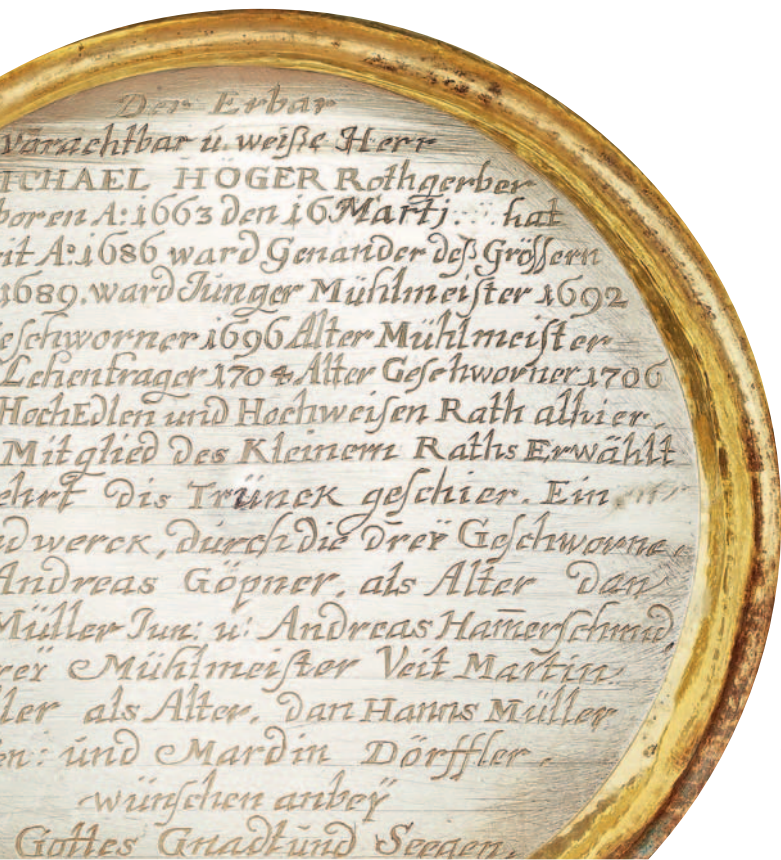 Der Erbar
Vorachtbar ü. weiße Herr
ICHAEL HÖGER Rothgerber
boren A: 1663 den 16 Martj ... hat
it A: 1686 ward Genander deß Grössern
1689. ward Jünger Mühlmeister 1692
eschworner 1696 Alter Mühlmeister
Lehentrager 1704 Alter Geschworner 1706
HochEdlen und Hochweisen Rath alhier.
Mitglied des Kleinern Raths Erwählt
ehrt dis Trünck geschier. Ein
dwerck, dürch die dreÿ Geschworne
Andreas Göpner. als Alter dan
Müller Jun: u: Andreas Ham̄erschmid
reÿ Mühlmeister Veit Martin
ler als Alter. dan Hanns Müller
en: ünd Mardin Dörffler.
wünschen anbeÿ
Gottes Gnad ünd Seegen.